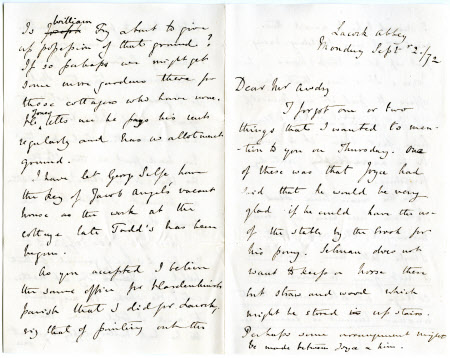 Lacock Abbey
Monday Sept 2/72
Dear Mr Awdry
I forgot one or two
things that I wanted to men-
-tion to you on Thursday. One
of these was that Joyce had
said that he would be very
glad if he could have the use
of the stable by the brook for
his pony. Selman does not
want to keep a horse there
but straw and wood which
might be stored up stairs.
Perhaps some arrangement might
be made between Joyce & him.
Is William Fry about to give
up possession of that ground?
If so perhaps we might get
some more gardens there for
those cottages who have none.
tells me he pays his rent
regularly and has no allotment
ground.
I have let George Selfe have
the key of Jacob Angel's vacant
house as the work at the
cottage late Todd's has been
begun.
As you accepted I believe
the same office for Hardenhuish
parish that I did for Lacock,
viz that of pointing out the